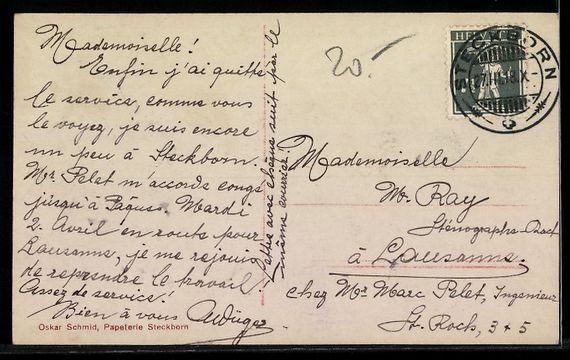 Mademoiselle!
Enfin j'ai quitté
le service, comme vous
le voyez, je suis encore
un peu à Steckborn.
Mr. Pelet m'accorde congé
jusqu'à Pâques. Mardi
2. Avril en route pour
Lausanne, je me réjouis
de reprendre le travail!
Assez de service!
Bien à vous
lettre avec chèque suit par le
même courrier!
20.-
HELVETIA
STECKBORN
Mademoiselle
M. Ray
Sténographe-Dact
à Lausanne.
chez Mr. Marc Pelet, Ingenieur
St. Roch, 3 + 5
Oskar Schmid, Papeterie Steckborn